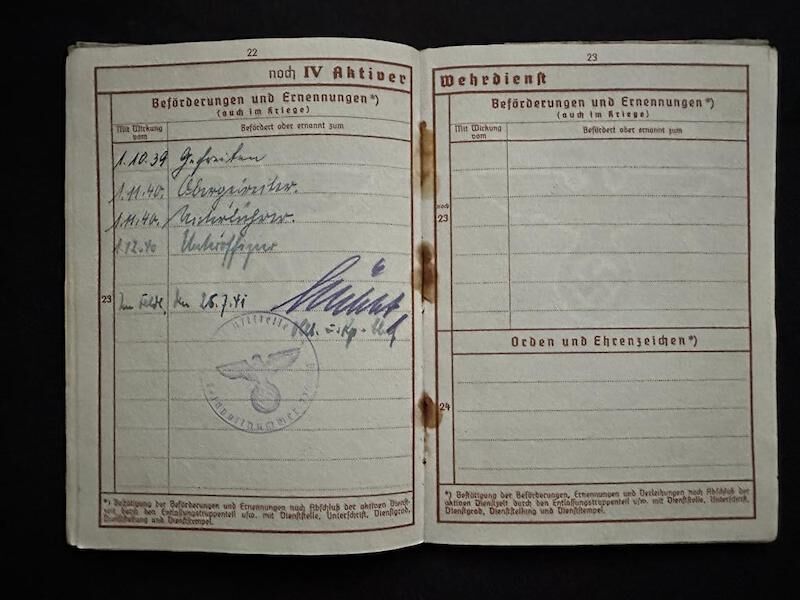 22
noch IV Aktiver
Beförderungen und Ernennungen*)
(auch im Kriege)
Mit Wirkung vom
Befördert oder ernannt zum
1.10.39 Gefreiten
1.11.40. Obergefreiter.
1.11.40. Unterführer.
1.12.40 Unteroffizier
23
Im Felde, den 26.7.41
Dienststelle
Feldpostnummer
*) Bestätigung der Beförderungen und Ernennungen nach Abschluß der aktiven Dienst-
zeit durch den Entlassungstruppenteil usw. mit Dienststelle, Unterschrift, Dienstgrad,
Dienststellung und Dienststempel.
23
Wehrdienst
Beförderungen und Ernennungen*)
(auch im Kriege)
Mit Wirkung vom
Befördert oder ernannt zum
noch
23
Orden und Ehrenzeichen*)
24
*) Bestätigung der Beförderungen, Ernennungen und Verleihungen nach Abschluß der
aktiven Dienstzeit durch den Entlassungstruppenteil usw. mit Dienststelle, Unterschrift,
Dienstgrad, Dienststellung und Dienststempel.